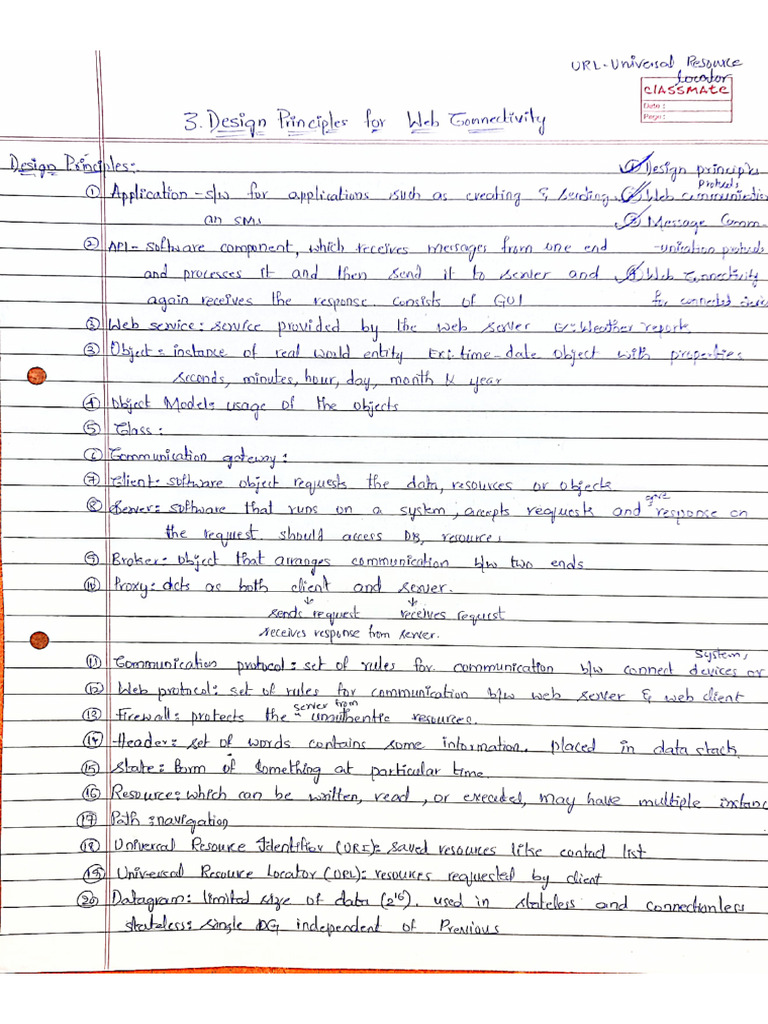 URL-Universal Resource
Locator
classmate
Date :
Page :
3. Design Principles for Web Connectivity
Design Principles:
① Design principles
① Application - s/w for applications such as creating & sending
② Web communication
protocols
an SMS
③ Message Comm-
② API - software component, which receives messages from one end
-unication protocols
and processes it and then send it to server and
④ Web Connectivity
again receives the response. consists of GUI
for connected
③ Web service: service provided by the web server Ex: Weather reports
③ Object: instance of real world entity Ex: time-date object with properties
seconds, minutes, hour, day, month & year
④ Object Model: usage of the objects
⑤ Class:
⑥ Communication gateway:
⑦ Client: software object requests the data, resources or objects
⑧ Server: software that runs on a system, accepts requests and give response on
the request. should access DB, resources
⑨ Broker: object that arranges communication b/w two ends
⑩ Proxy: Acts as both client and server.
↓ ↓
sends request receives request
receives response from server.
⑪ Communication protocol: set of rules for communication b/w connect devices or
system,
⑫ Web protocol: set of rules for communication b/w web server & web client
⑬ Firewall: protects the server from unauthentic resources.
⑭ Header: set of words contains some information. placed in data stack
⑮ State: form of something at particular time.
⑯ Resource: which can be written, read, or executed, may have multiple instanc
⑰ Path: navigation
⑱ Universal Resource Identifier (URI): saved resources like contact list
⑲ Universal Resource Locator (URL): resources requested by client
⑳ Datagram: limited size of data (2¹⁶). used in stateless and connectionless
stateless: single DG independent of Previous